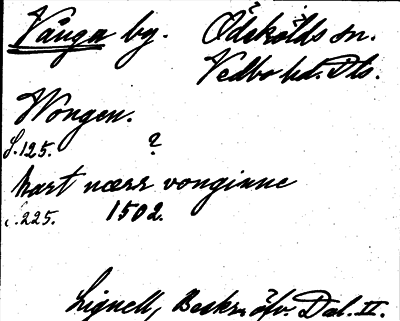 Vånga by. Ödskölds sn.
Vedbo hd. Dls.
Wongen.
S. 125. ?
hart nærr vonginne
S. 225. 1502.
Lignell, Beskr. öfv. Dal. II.